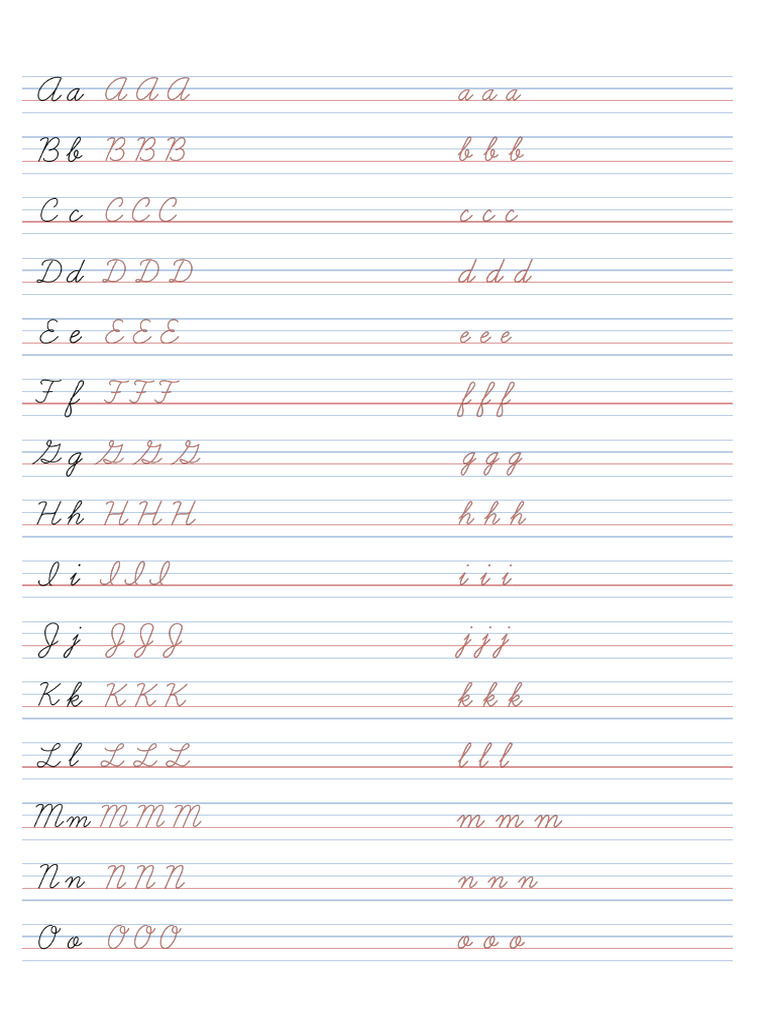 Aa A A A a a a
Bb B B B b b b
Cc C C C c c c
Dd D D D d d d
Ee E E E e e e
Ff F F F f f f
Gg G G G g g g
Hh H H H h h h
Ii I I I i i i
Jj J J J j j j
Kk K K K k k k
Ll L L L l l l
Mm M M M m m m
Nn N N N n n n
Oo O O O o o o